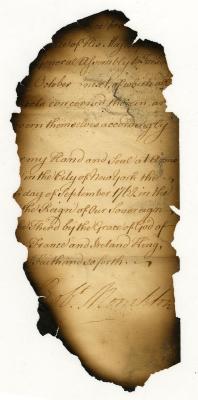 of His Maj
General Assembly
October next, of which all
concerned therein, are
themselves accordingly
my Hand and Seal at
in the City of New York the
day of September 1762 in the
the Reign of Our Sovereign
Third by the Grace of God of
France and Ireland King,
Faith and so forth
Robt Monckton